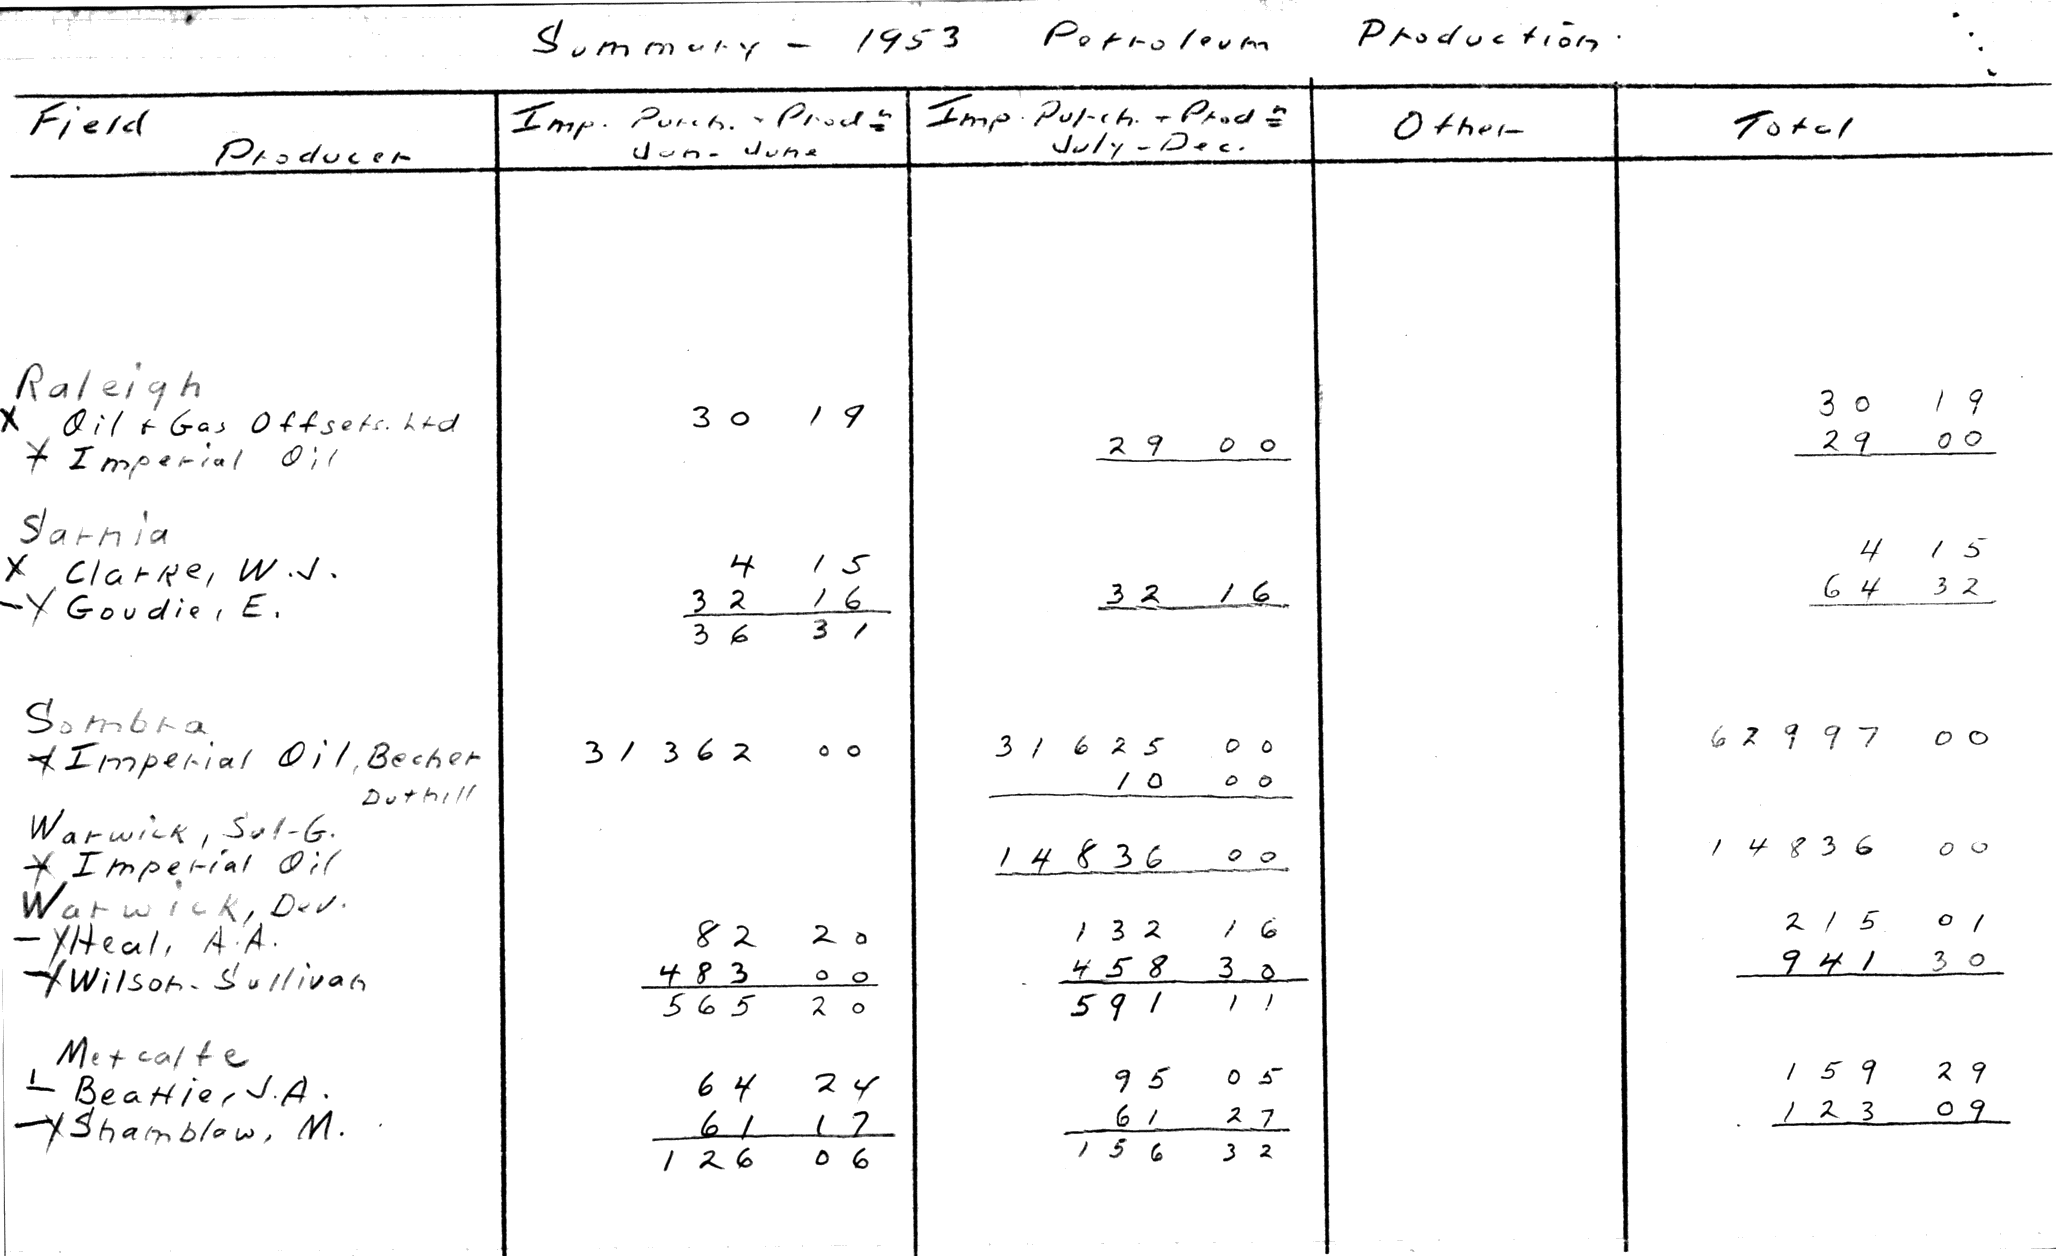 Summary - 1953 Petroleum Production.
Field Producer | Imp. Purch. + Prodn Jan - June | Imp. Purch. + Prodn July - Dec. | Other | Total
Raleigh
X Oil + Gas Offsets. Ltd 30 19 30 19
X Imperial Oil 29 00 29 00
Sarnia
X Clarke, W.J. 4 15 4 15
-X Goudie, E. 32 16 32 16 64 32
36 31
Sombra
X Imperial Oil, Becher 31362 00 31625 00 62997 00
Duthill 10 00
Warwick, Sul-G.
X Imperial Oil 14836 00 14836 00
Warwick, Dev.
-X Heal, A.A. 82 20 132 16 215 01
-X Wilson-Sullivan 483 00 458 30 941 30
565 20 591 11
Metcalfe
- Beattie, J.A. 64 24 95 05 159 29
-X Shamblaw, M. 61 17 61 27 123 09
126 06 156 32